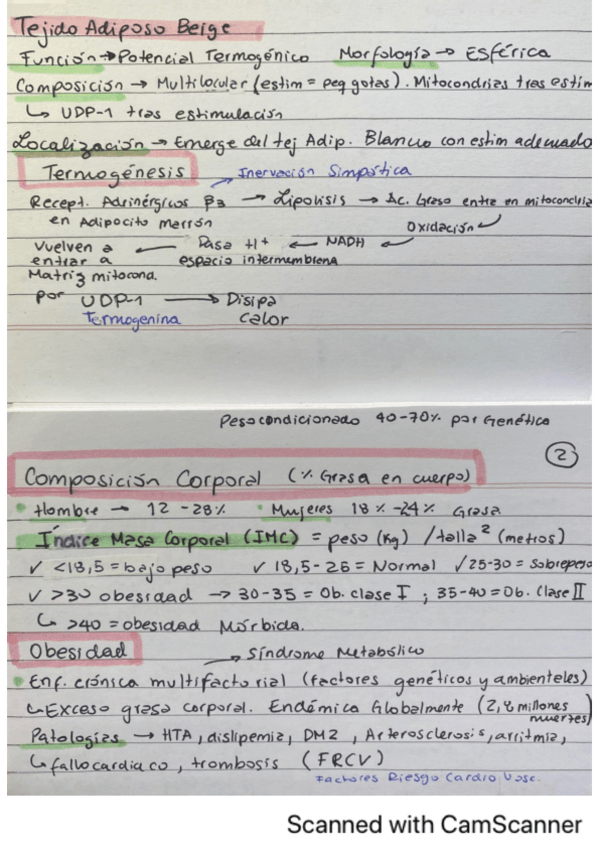 Tejido Adiposo Beige
Función → Potencial Termogénico Morfología → Esférica
Composición → Multilocular (estim = peq gotas). Mitocondrias tras estim
↳ UDP-1 tras estimulación
Localización → Emerge del tej Adip. Blanco con estim adecuado
Termogénesis → Inervación Simpática
Recept. Adrinérgicos β3 → Lipolisis → Ac. Graso entra en mitocondria
en Adipocito marrón Oxidación
Vuelven a ← Pasa H+ ← NADH
entrar a espacio intermembrena
Matriz mitocona.
por UDP-1 → Disipa
Termogenina calor
Peso condicionado 40-70% por Genética
2
Composición Corporal (% Grasa en cuerpo)
Hombre → 12-28% Mujeres 18%-24% Grasa
Índice Masa Corporal (IMC) = peso (Kg) / talla² (metros)
✓ <18,5 = bajo peso ✓ 18,5-25 = Normal ✓ 25-30 = sobrepeso
✓ >30 obesidad → 30-35 = Ob. clase I ; 35-40 = Ob. Clase II
↳ >40 = obesidad Mórbida.
Obesidad → Síndrome Metabólico
Enf. crónica multifactorial (factores genéticos y ambienteles)
↳ Exceso grasa corporal. Endémica Globalmente (2,8 millones
muertes)
Patologías → HTA, dislipemia, DM2, Arterosclerosis, arritmia,
↳ fallo cardiaco, trombosis (FRCV)
Factores Riesgo Cardio Vasc.
Scanned with CamScanner